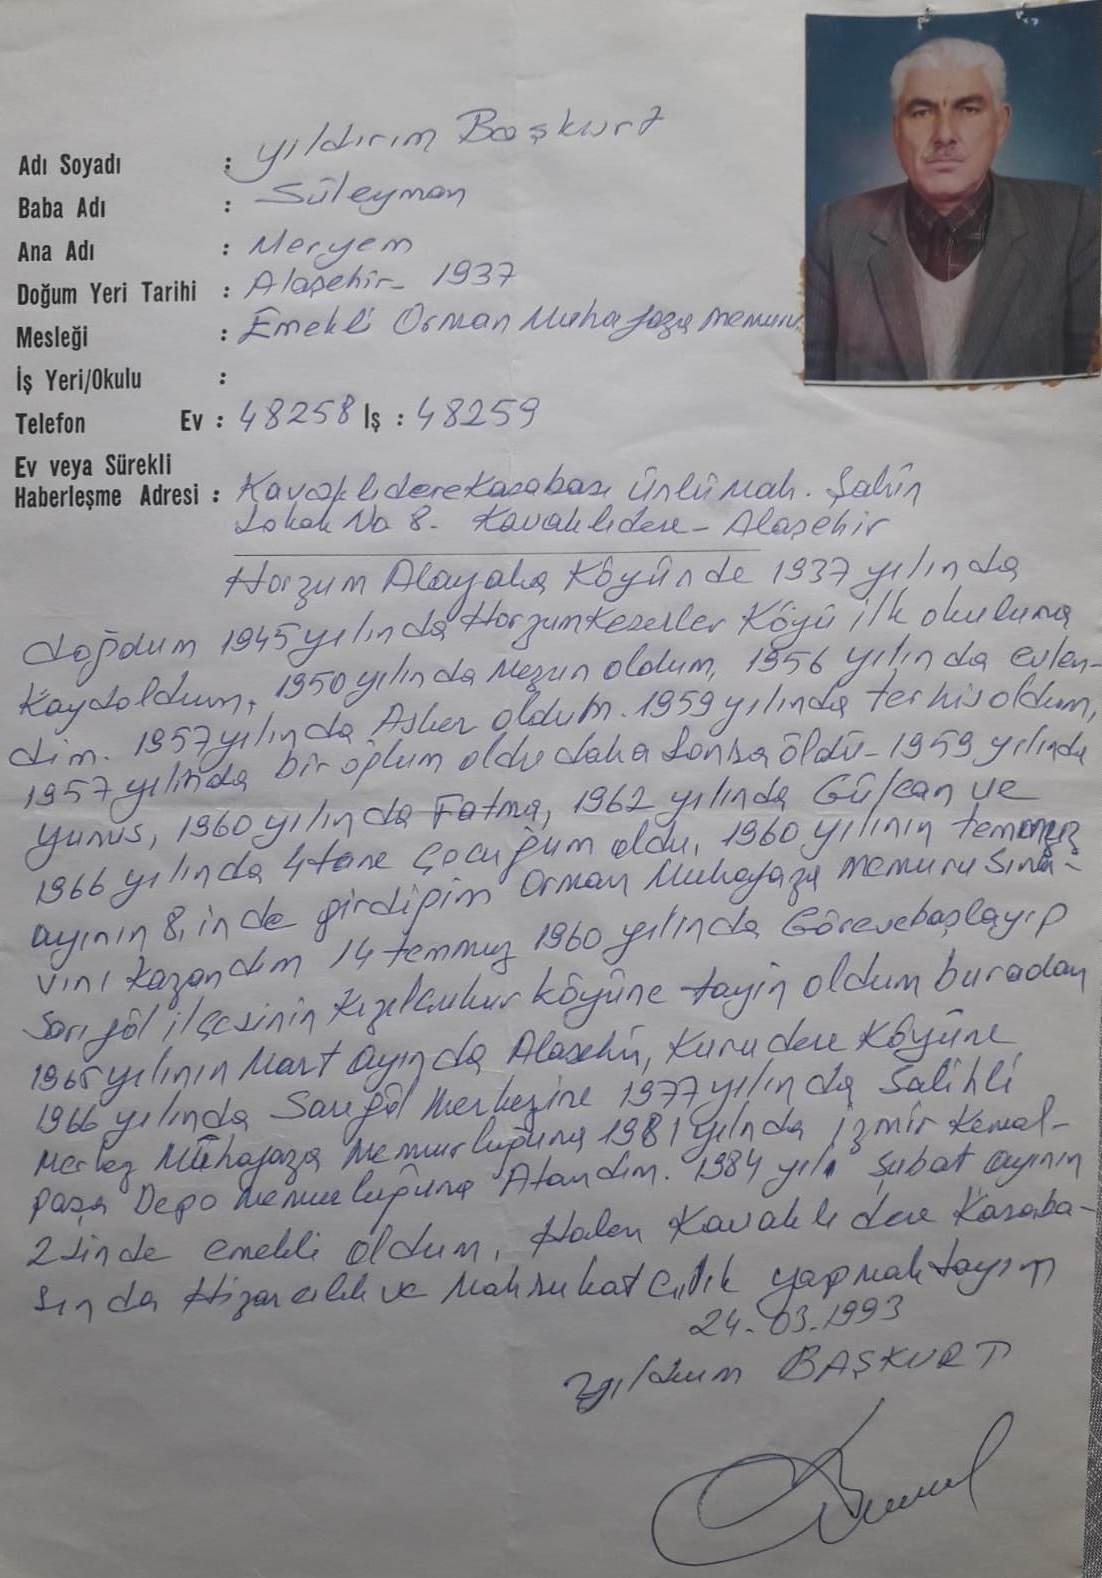 Adı Soyadı : Yıldırım Başkurt
Baba Adı : Süleyman
Ana Adı : Meryem
Doğum Yeri Tarihi : Alaşehir - 1937
Mesleği : Emekli Orman Muhafaza memuru
İş Yeri/Okulu :
Telefon Ev : 48258 İş : 48259
Ev veya Sürekli
Haberleşme Adresi : Kavaklıdere Kasabası Ünlü Mah. Şahin
Sokak No 8. Kavaklıdere - Alaşehir
Horzum Alayaka Köyünde 1937 yılında
doğdum 1945 yılında Horzum Keserler Köyü ilk okuluna
Kaydoldum, 1950 yılında mezun oldum, 1956 yılında evlen-
dim. 1957 yılında Asker oldum. 1959 yılında terhis oldum,
1957 yılında bir oğlum oldu daha sonra öldü - 1959 yılında
Yunus, 1960 yılında Fatma, 1962 yılında Gülcan ve
1966 yılında 4 tane Çocuğum oldu, 1960 yılının temmuz
ayının 8, inde girdiğim Orman Muhafaza memuru Sına-
vını kazandım 14 temmuz 1960 yılında Göreve başlayıp
Sarıgöl ilçesinin Kızılçukur köyüne tayin oldum buradan
1965 yılının Mart ayında Alaşehir, Kurudere Köyüne
1966 yılında Sarıgöl Merkezine 1977 yılında Salihli
Merkez Mühafaza Memurluğuna 1981 yılnda İzmir Kemal-
paşa Depo Memurluğuna Atandım. 1984 yılı Şubat ayının
2 sinde emekli oldum, Halen Kavaklıdere Kasaba-
sında Hızarcılık ve Mahrukatcılık yapmaktayım
24-03-1993
Yıldırım BAŞKURT